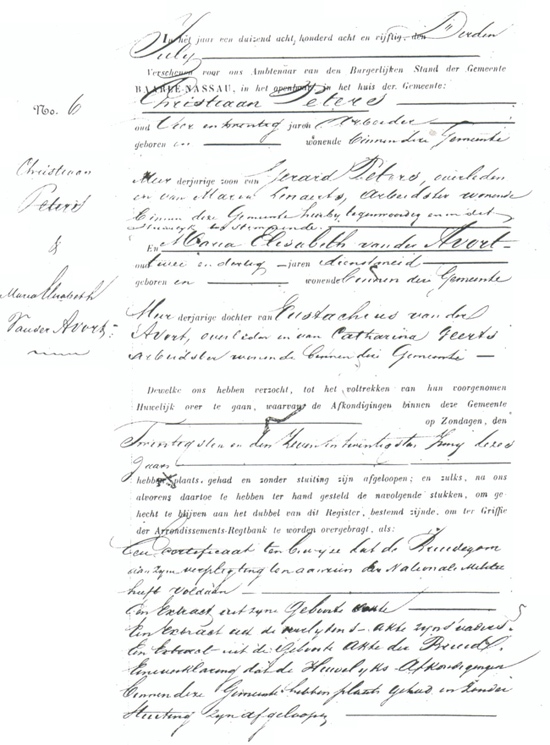 In het jaar een duizend acht honderd acht en vijftig, den Derden
July
Verscheen voor ons Ambtenaar van den Burgerlijken Stand der Gemeente
BAARLE-NASSAU, in het openbaar, in het huis der Gemeente:
No. 6
Christiaan Peters
oud Vier en twintig jaren Arbeider
geboren en wonende binnen dese Gemeente
Christiaan
Peters
&
Maria Elisabeth
Van der Avort
Meer derjarige zoon van Gerard Peters, overleden
en van Maria Lenaerts, Arbeidster wonende
binnen dese Gemeente hierby tegenwoordig en in det
huwelijk toestemmende.
En Maria Elisabeth van der Avort
oud twee en dertig jaren dienstmeid
geboren en wonende binnen dese Gemeente
Meer derjarige dochter van Eustachius van der
Avort, overleden en van Catharina Geerts
Arbeidster wonende binnen dese Gemeente
Dewelke ons hebben verzocht, tot het voltrekken van hun voorgenomen
Huwelijk over te gaan, waarvan de Afkondigingen binnen deze Gemeente
op Zondagen, den
Twintigsten en den Zeven en twintigsten Juny dezes
Jaars
hebben plaats gehad en zonder stuiting zijn afgeloopen; en zulks, na ons
alvorens daartoe te hebben ter hand gesteld de navolgende stukken, om ge-
hecht te blijven aan het dubbel van dit Register, bestemd zijnde, om ter Griffie
der Arrondissements-Regtbank te worden overgebragt, als:
Een Certificaat ten bewyze dat de Bruidegom
aan zyne verpligting ten aanzien der Nationale Militie
heeft voldaan
Een Extract uit zyne Geboorte akte
Een Extract uit de overlydens-Akte zyns vaders.
Een Extract uit de Geboorte Akte der Bruid.
Eene verklaring dat de Huwelyks Afkondigingen
binnen deze Gemeente hebben plaats gehad en zonder
Stuiting zyn afgeloopen